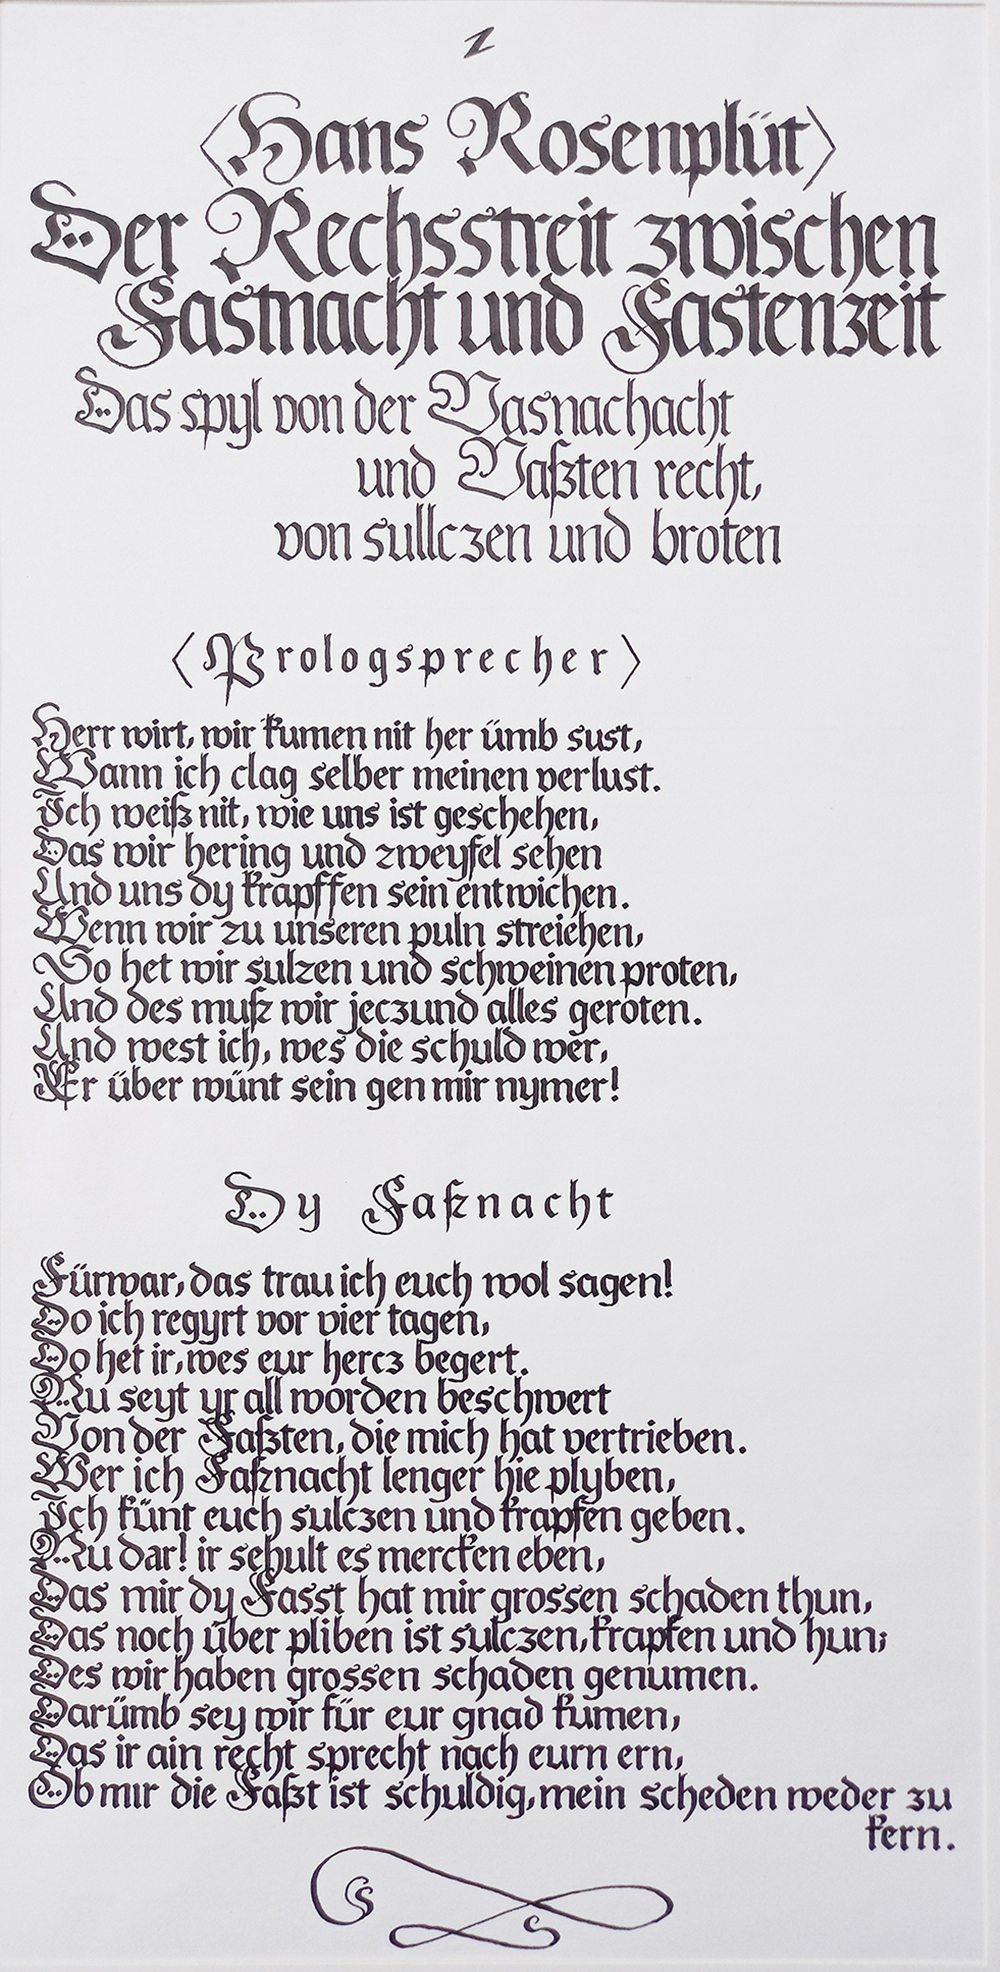 2
〈Hans Rosenplüt〉
Der Rechsstreit zwischen
Fastnacht und Fastenzeit
Das spyl von der Vasnachacht
und Vaßten recht,
von sullczen und broten
〈Prologsprecher〉
Herr wirt, wir kumen nit her ümb sust,
Wann ich clag selber meinen verlust.
Ich weiß nit, wie uns ist geschehen,
Das wir hering und zweyfel sehen
Und uns dy krapffen sein entwichen.
Wenn wir zu unseren puln streichen,
So het wir sulzen und schweinen proten,
Und des muß wir jeczund alles geroten.
Und west ich, wes die schuld wer,
Er über wünt sein gen mir nymer!
Dy Faßnacht
Fürwar, das trau ich euch wol sagen!
Do ich regyrt vor vier tagen,
Do het ir, wes eur hercz begert.
Nu seyt yr all worden beschwert
Von der Faßten, die mich hat vertrieben.
Wer ich Faßnacht lenger hie plyben,
Ich künt euch sulczen und krapfen geben.
Nu dar! ir schult es mercken eben,
Das mir dy Fasst hat mir grossen schaden thun,
Das noch über pliben ist sulczen, krapfen und hun;
Des wir haben grossen schaden genumen.
Darümb sey wir für eur gnad kumen,
Das ir ain recht sprecht nach eurn ern,
Ob mir die Faßt ist schuldig, mein scheden weder zu
kern.